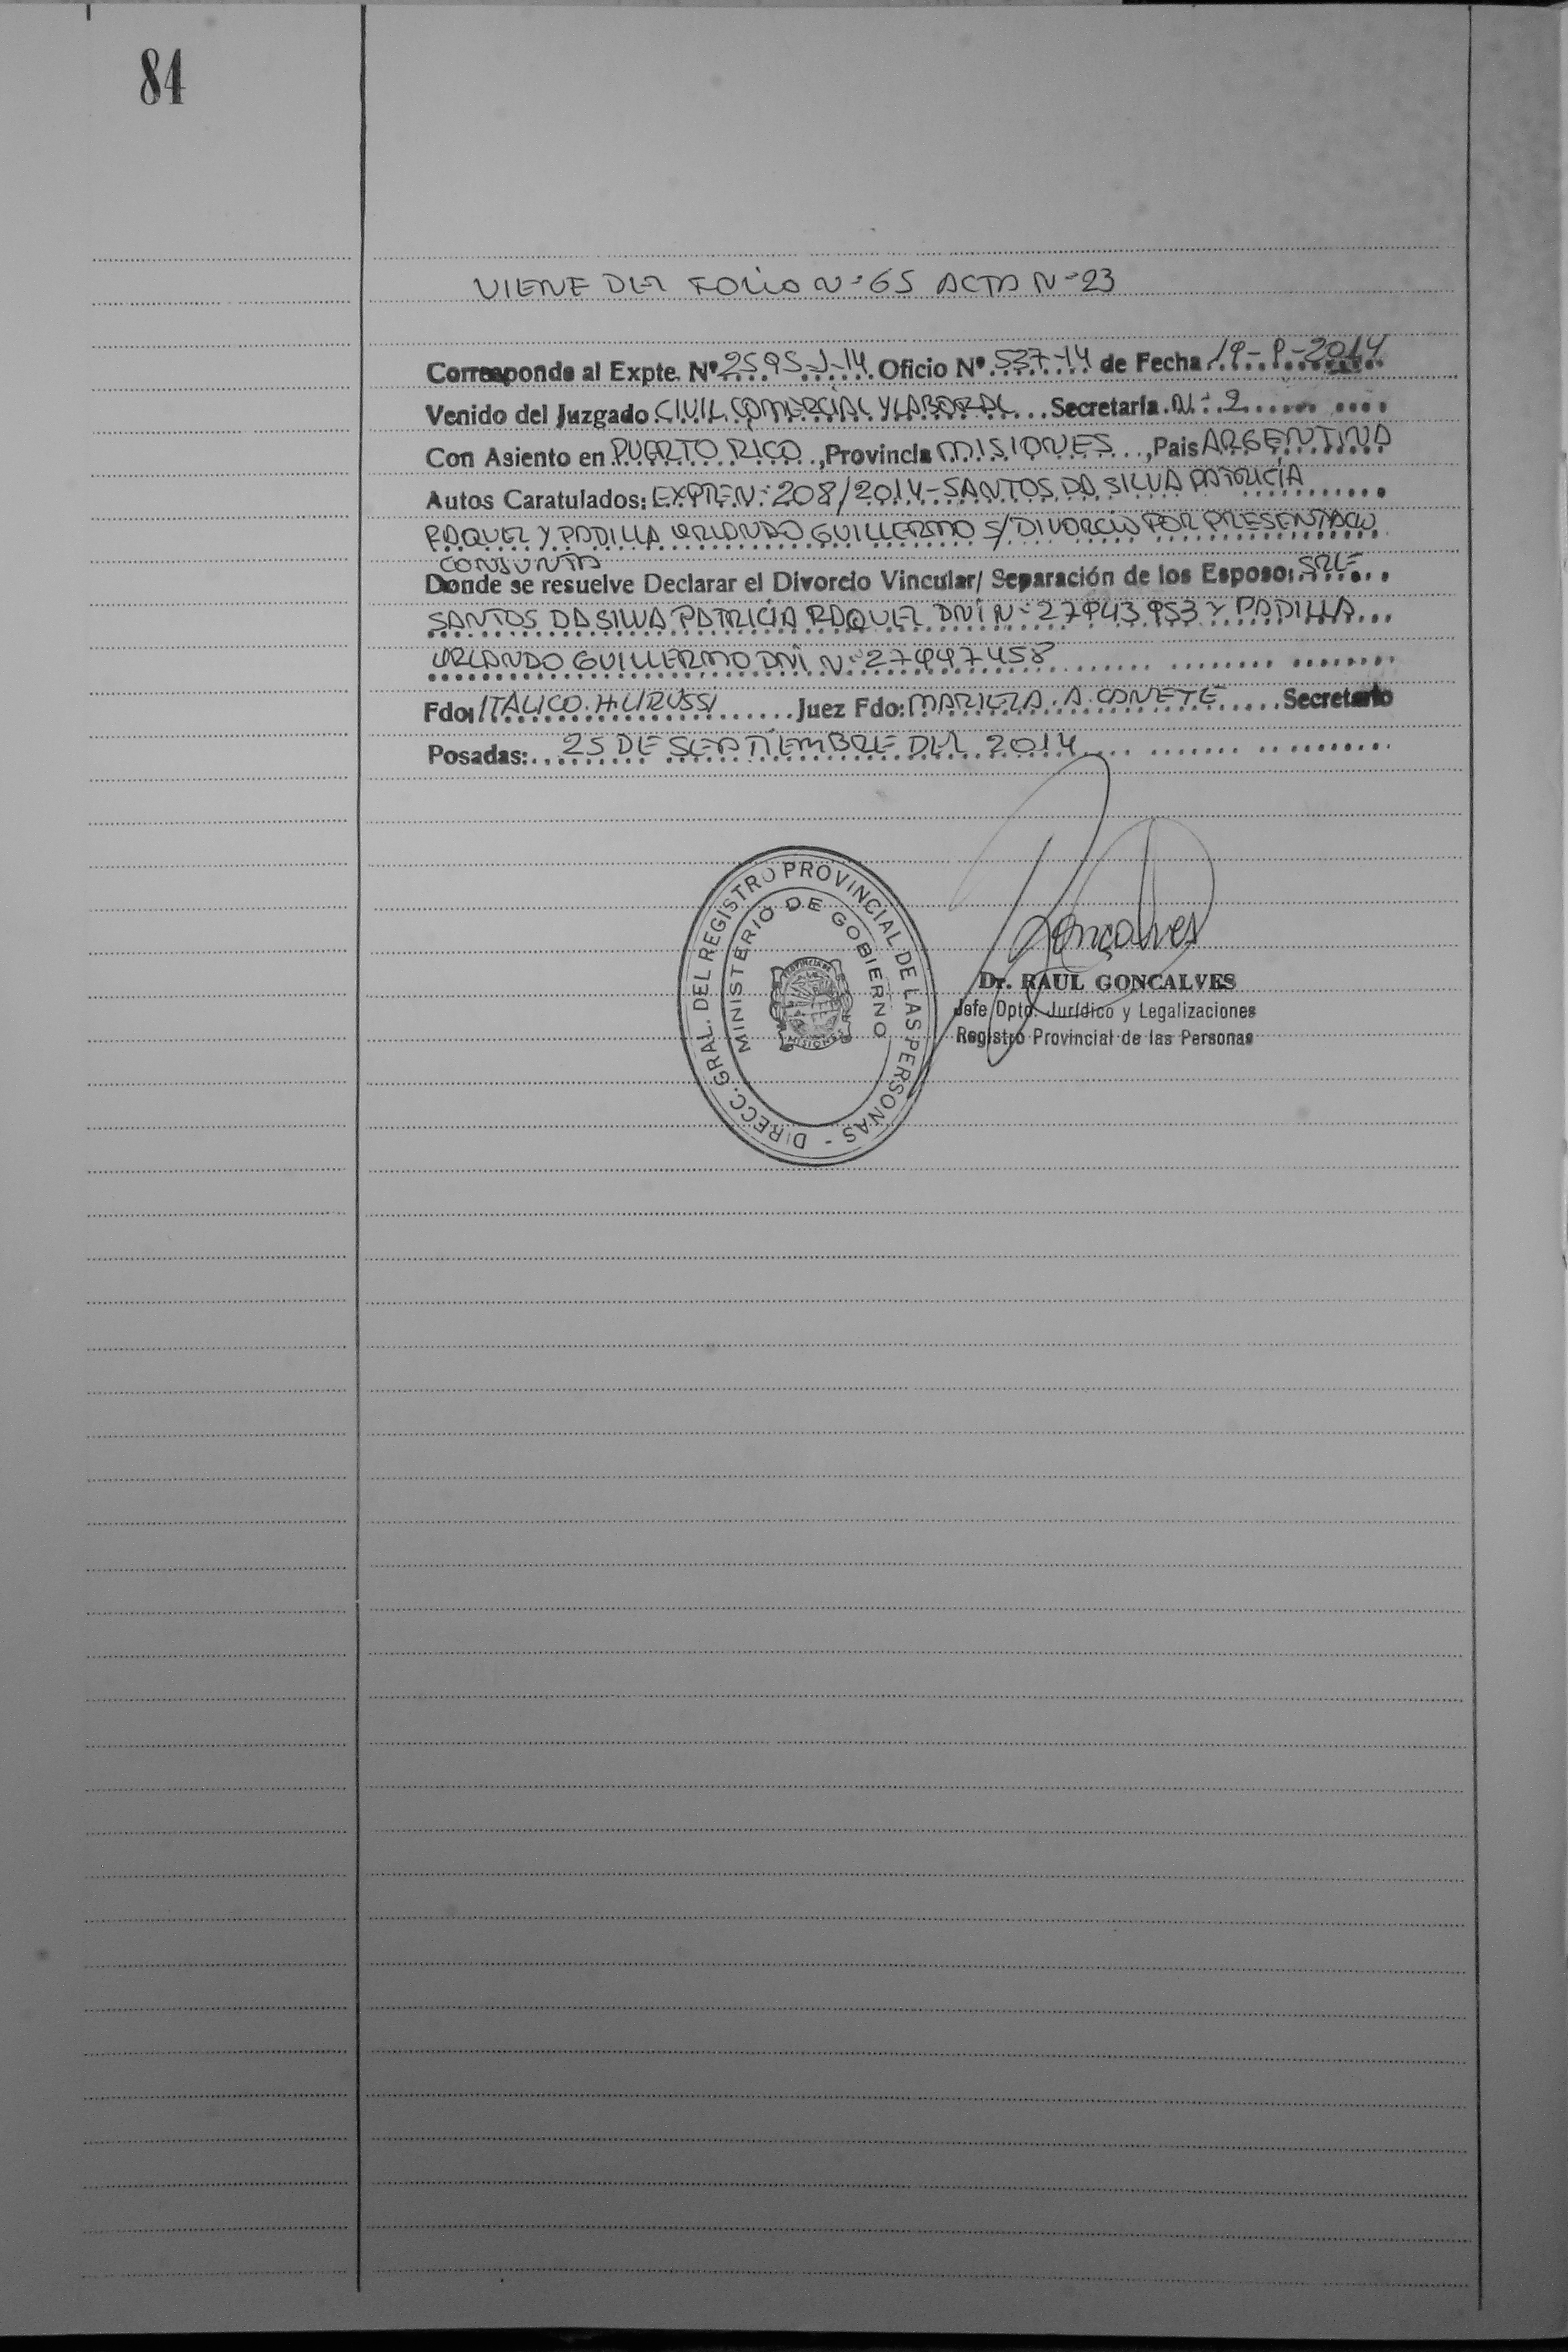 84
VIENE DEL FOLIO Nº 65 ACTA Nº 23
Corresponde al Expte. Nº 2595-J-14 Oficio Nº 537-14 de Fecha 19-9-2014
Venido del Juzgado CIVIL COMERCIAL Y LABORAL Secretaría Nº 2
Con Asiento en PUERTO RICO, Provincia MISIONES, Pais ARGENTINA
Autos Caratulados: EXPTE Nº 208/2014-SANTOS DA SILVA PATRICIA
RAQUEL Y PADILLA ORLANDO GUILLERMO S/DIVORCIO POR PRESENTACIO
CONJUNTA
Donde se resuelve Declarar el Divorcio Vincular/ Separación de los Esposo:
SANTOS DA SILVA PATRICIA RAQUEL DNI Nº 27943953 Y PADILLA
ORLANDO GUILLERMO DNI Nº 27447458
Fdo: ITALICO. H. Juez Fdo: A. Secretario
Posadas: 25 DE SEPTIEMBRE DEL 2014
DIRECC. GRAL. DEL REGISTRO PROVINCIAL DE LAS PERSONAS -
MINISTERIO DE GOBIERNO
PROVINCIA DE
MISIONES
Gonçalves
Dr. RAUL GONCALVES
Jefe Dpto. Jurídico y Legalizaciones
Registro Provincial de las Personas